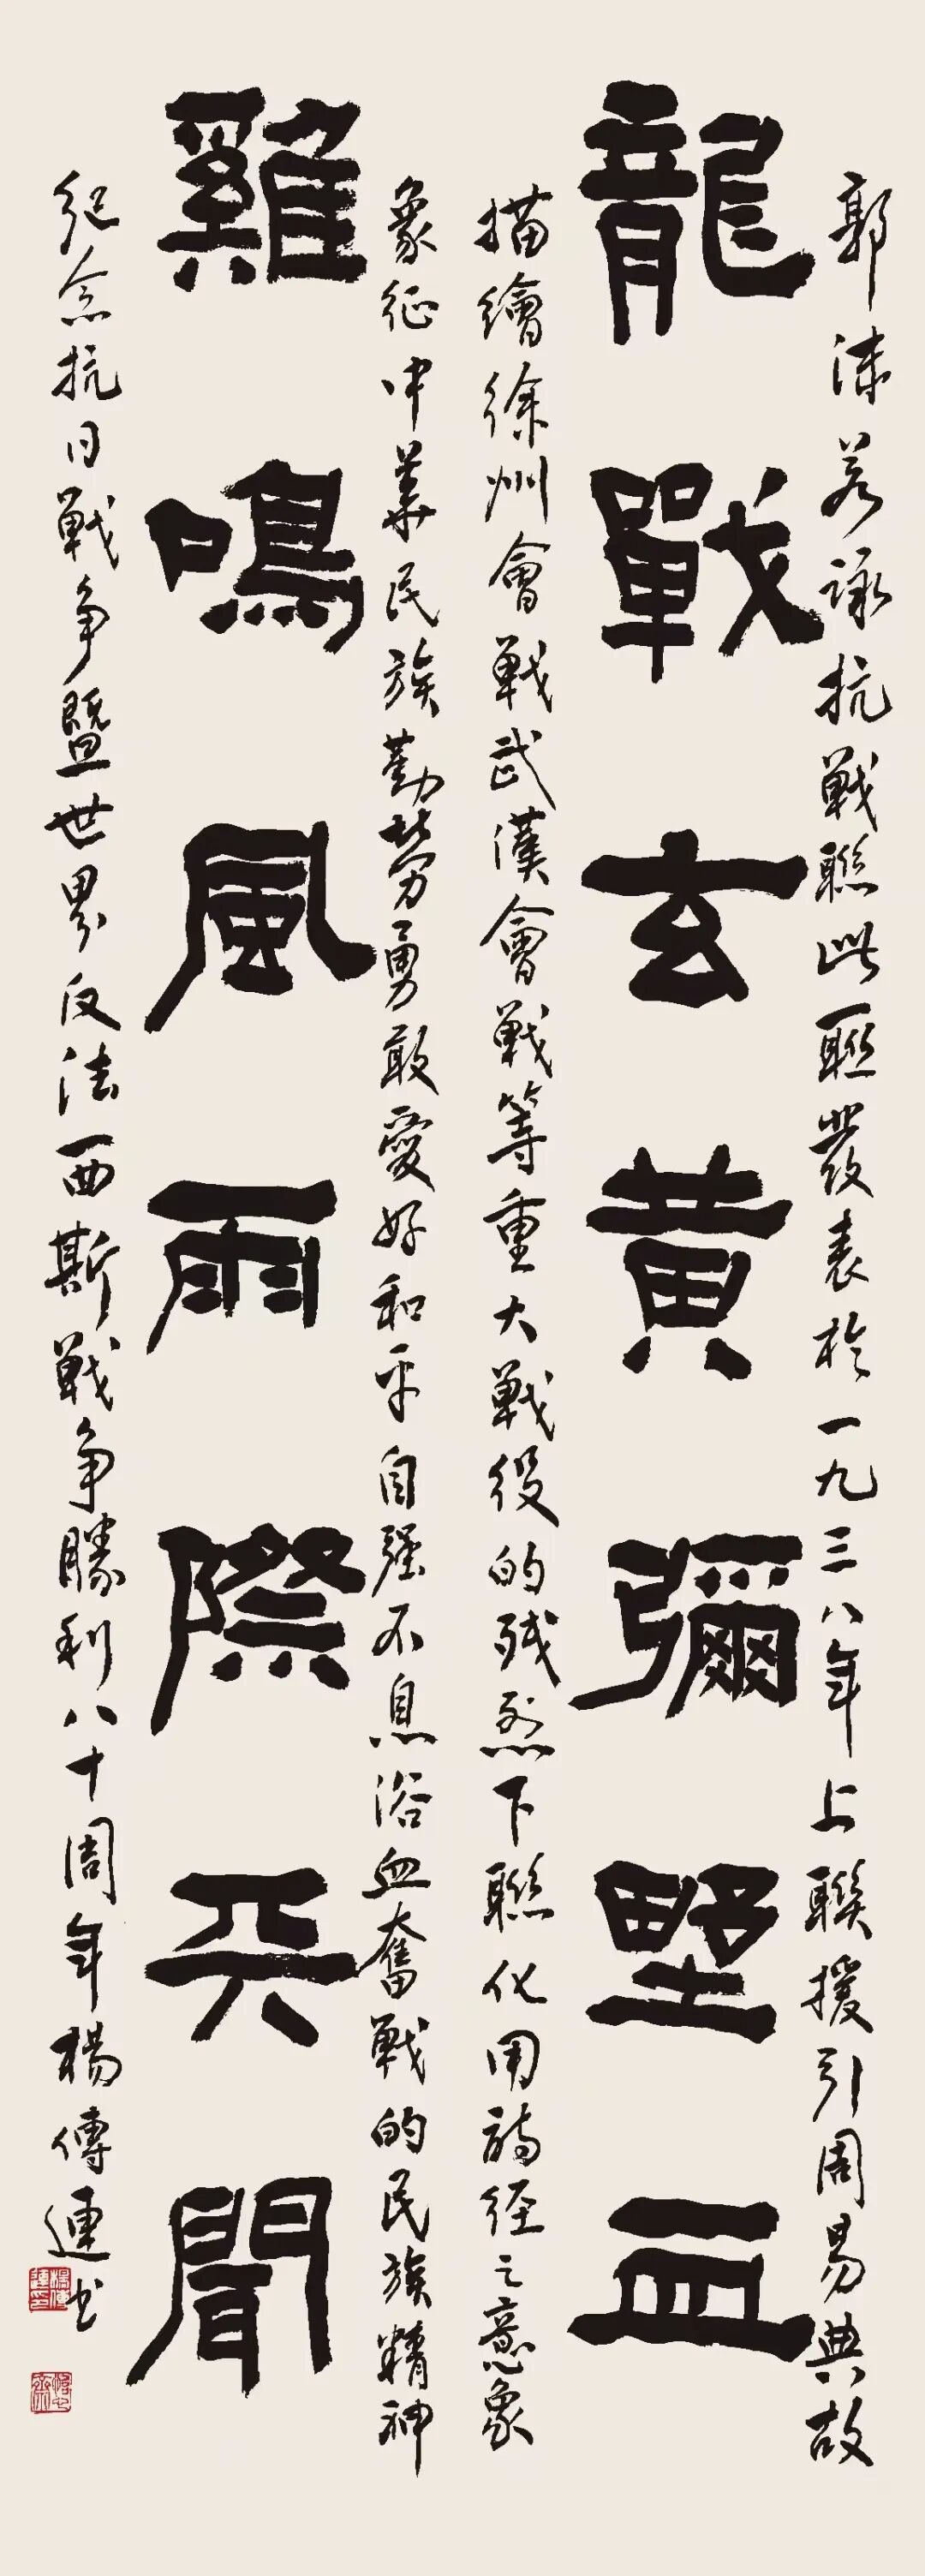 郭沫若詠抗戰聯此聯發表於一九三八年上聯援引周易典故
龍戰玄黃彌野血
描繪徐州會戰武漢會戰等重大戰役的残烈下聯化用詩經之意象
象征中華民族勤勞勇敢愛好和平自强不息浴血奮戰的民族精神
雞鳴風雨際天聞
紀念抗日戰争暨世界反法西斯戰争勝利八十周年楊傳連书